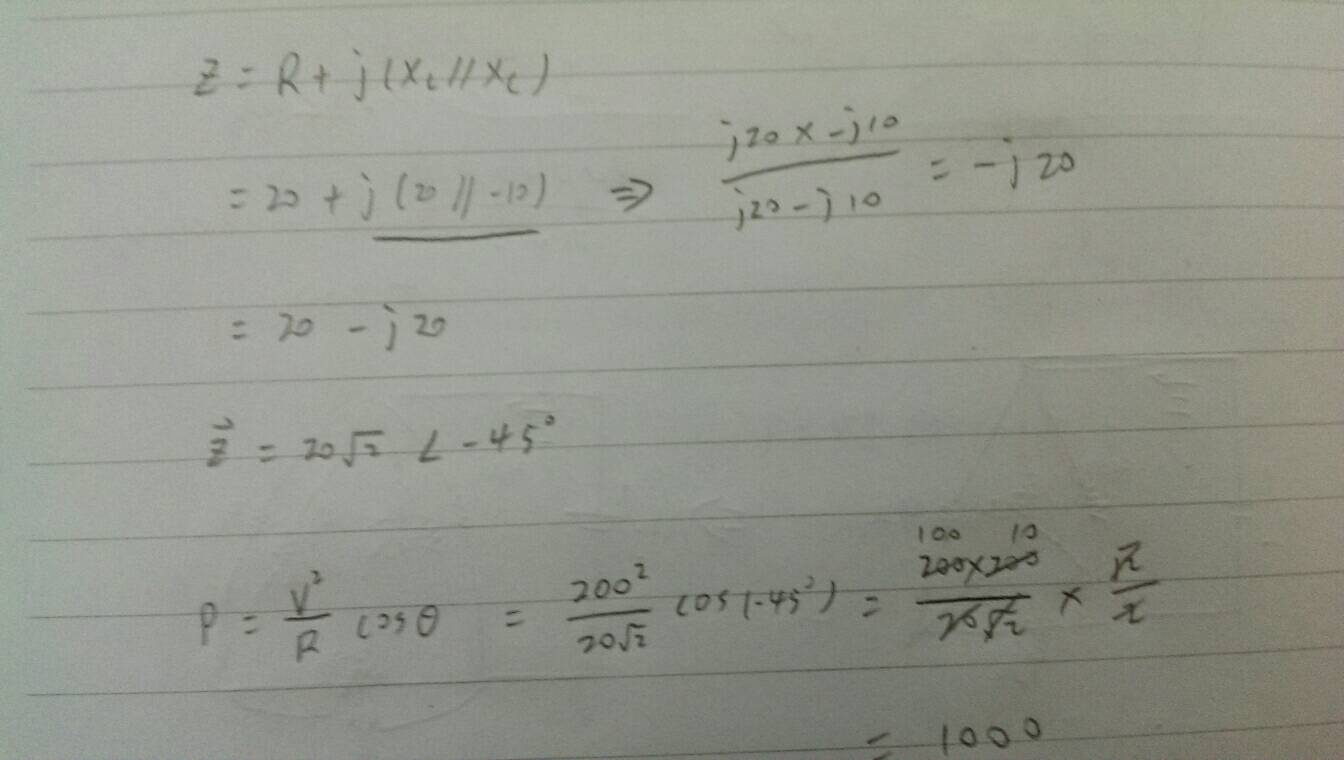 Z = R + j(X_L // X_C)
= 20 + j(20 // -10) ⇒ (j20 × -j10)/(j20 - j10) = -j20
= 20 - j20
Z⃗ = 20√2 ∠ -45°
P = V²/R cosθ = 200²/(20√2) cos(-45°) = (200×200)/(20√2) × √2/2
100 10
= 1000